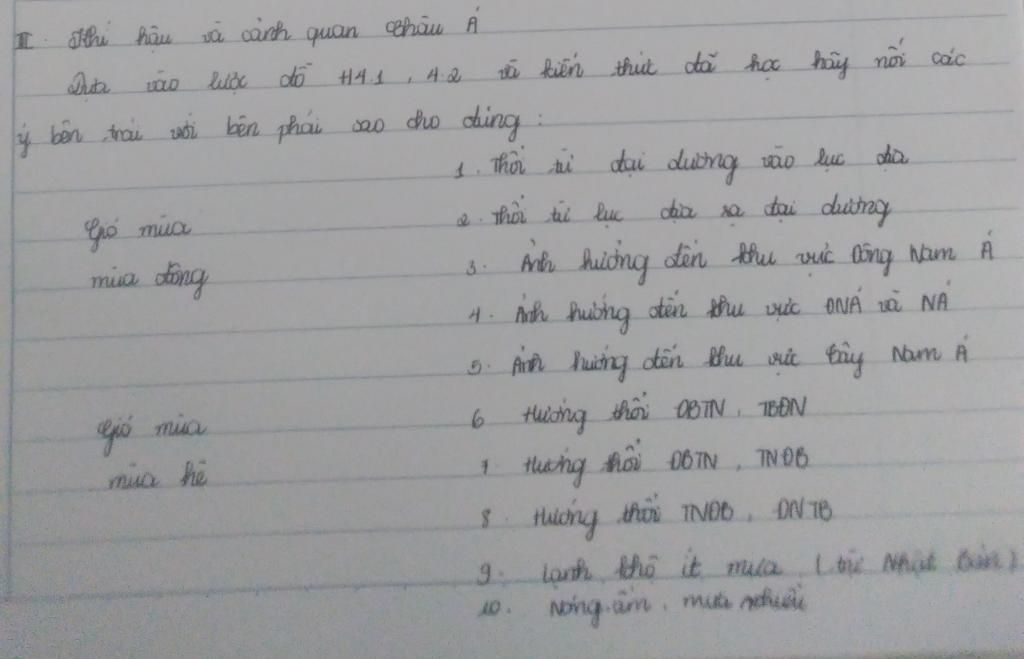 II. Khí hậu và cảnh quan Châu Á
Dựa vào lược đồ H4.1, 4.2 và kiến thức đã học hãy nối các
ý bên trái với bên phải sao cho đúng:
1. Thổi từ đại dương vào lục địa
Gió mùa
2. Thổi từ lục địa ra đại dương
mùa đông
3. Ảnh hưởng đến khu vực Đông Nam Á
4. Ảnh hưởng đến khu vực ĐNÁ và NÁ
5. Ảnh hưởng đến khu vực Tây Nam Á
Gió mùa
6 Hướng thổi ĐBTN, TBĐN
mùa hè
7. Hướng thổi ĐBTN, TNĐB
8. Hướng thổi TNĐB, ĐNTB
9. Lạnh khô ít mưa (trừ Nhật Bản)
10. Nóng ẩm, mưa nhiều